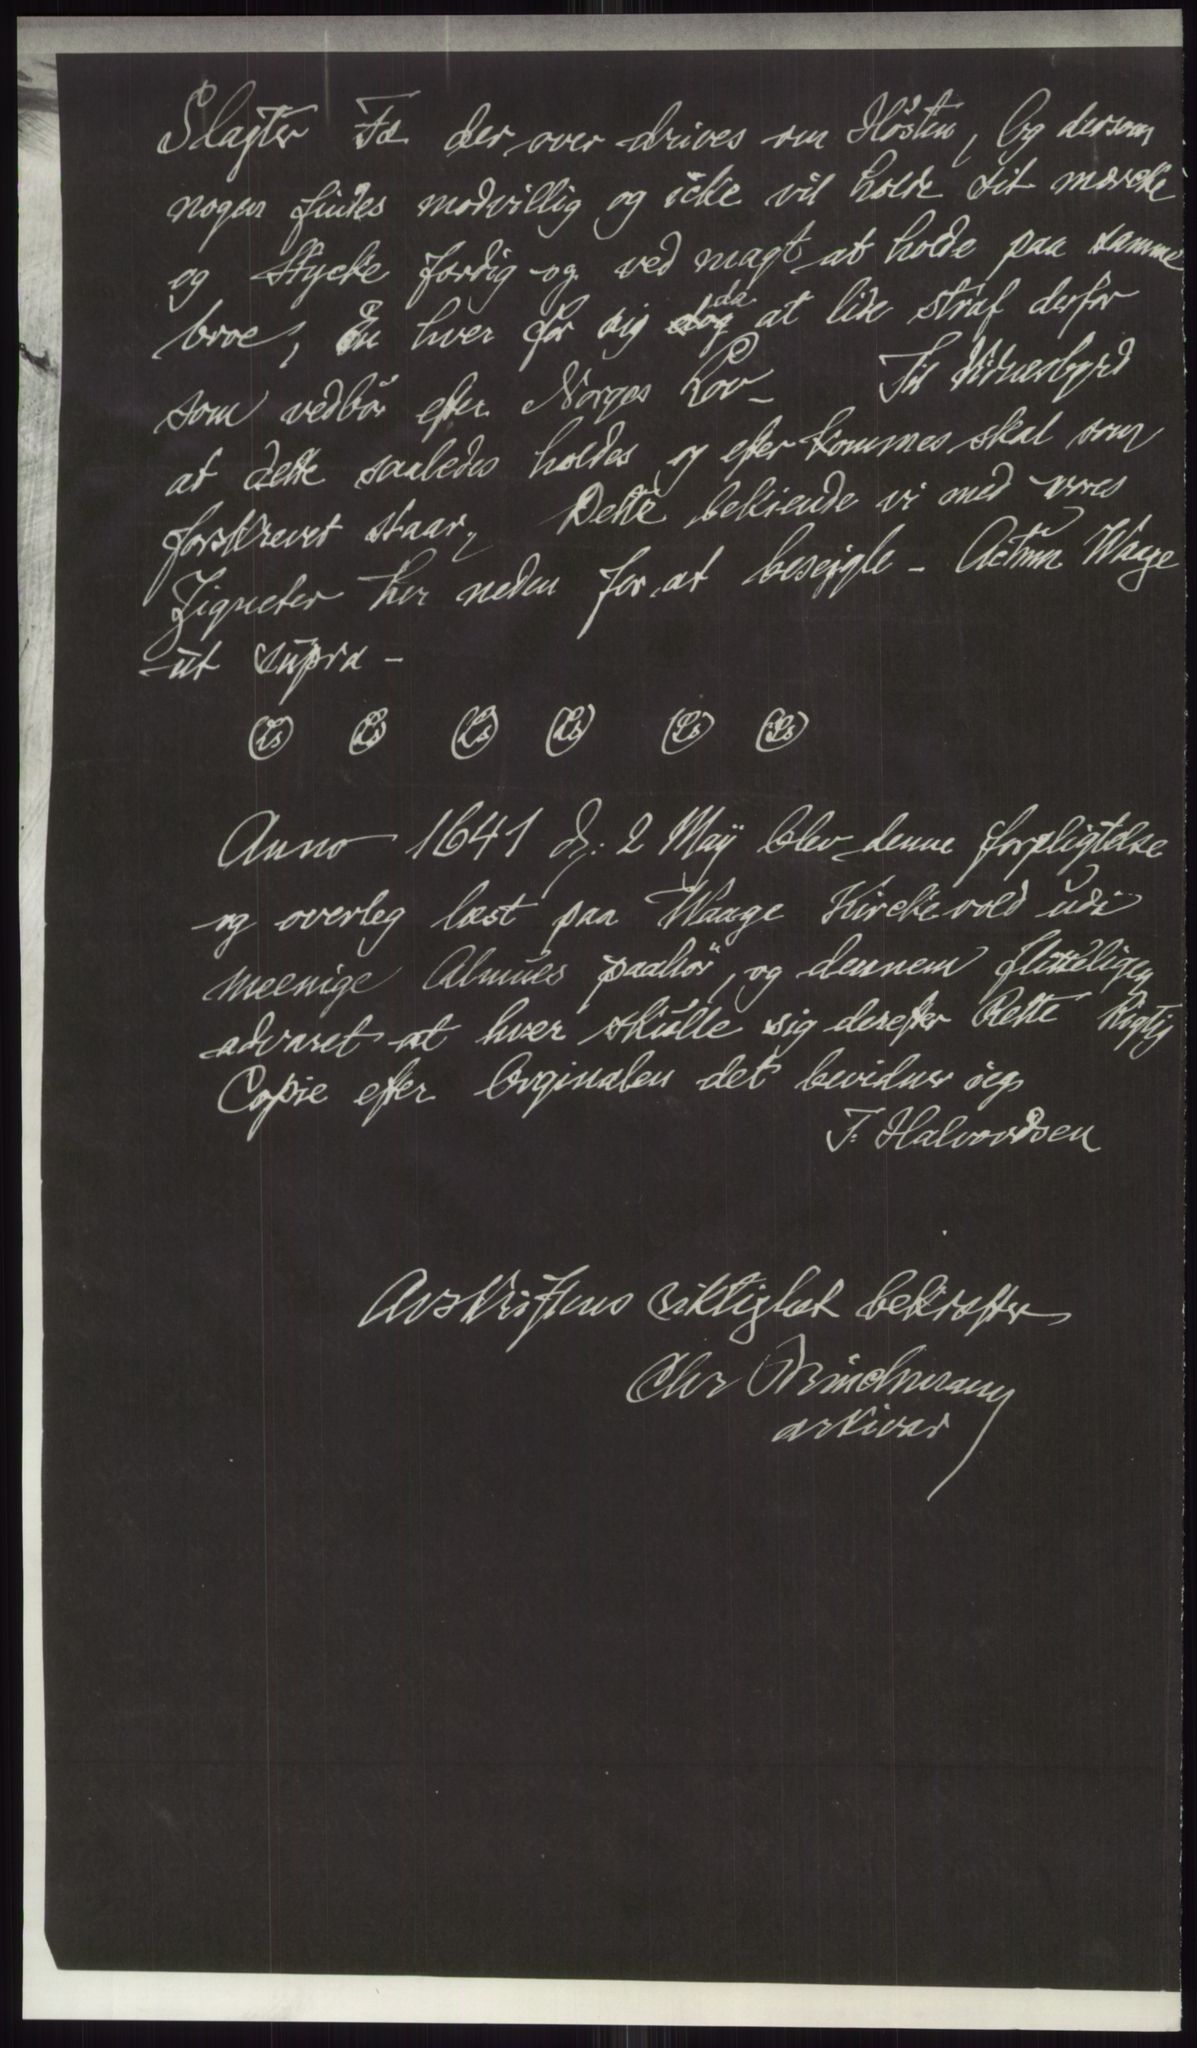 Slagter Fæ der over drives om Høsten, Og dersom
nogen findes modvillig og icke vil holde sit mærcke
og stycke færdig og ved magt at holde paa samme
broe, En hver for sig da at lide straf derfor
som vedbør efter Norges Lov – Til Vidnesbyrd
at dette saaledes holdes og efter kommes skal som
forskrevet staar, Dette bekiende vi med vores
Zigneter her neden for at beseigle – Actum Waage
ut supra –
Ls Ls Ls Ls Ls Ls
Anno 1641 d: 2 Maÿ blev denne forpligtelse
og overleg læst paa Waage Kirckevold udi
meenige Almues paahør, og dennem flitteligen
advaret at hver skulle sig derefter Rette Rigtig
Copie efter Orginalen det bevidner ieg
T. Halvordsen
Avskriftens riktighet bekræfter
Chr Brinchmann
arkivar